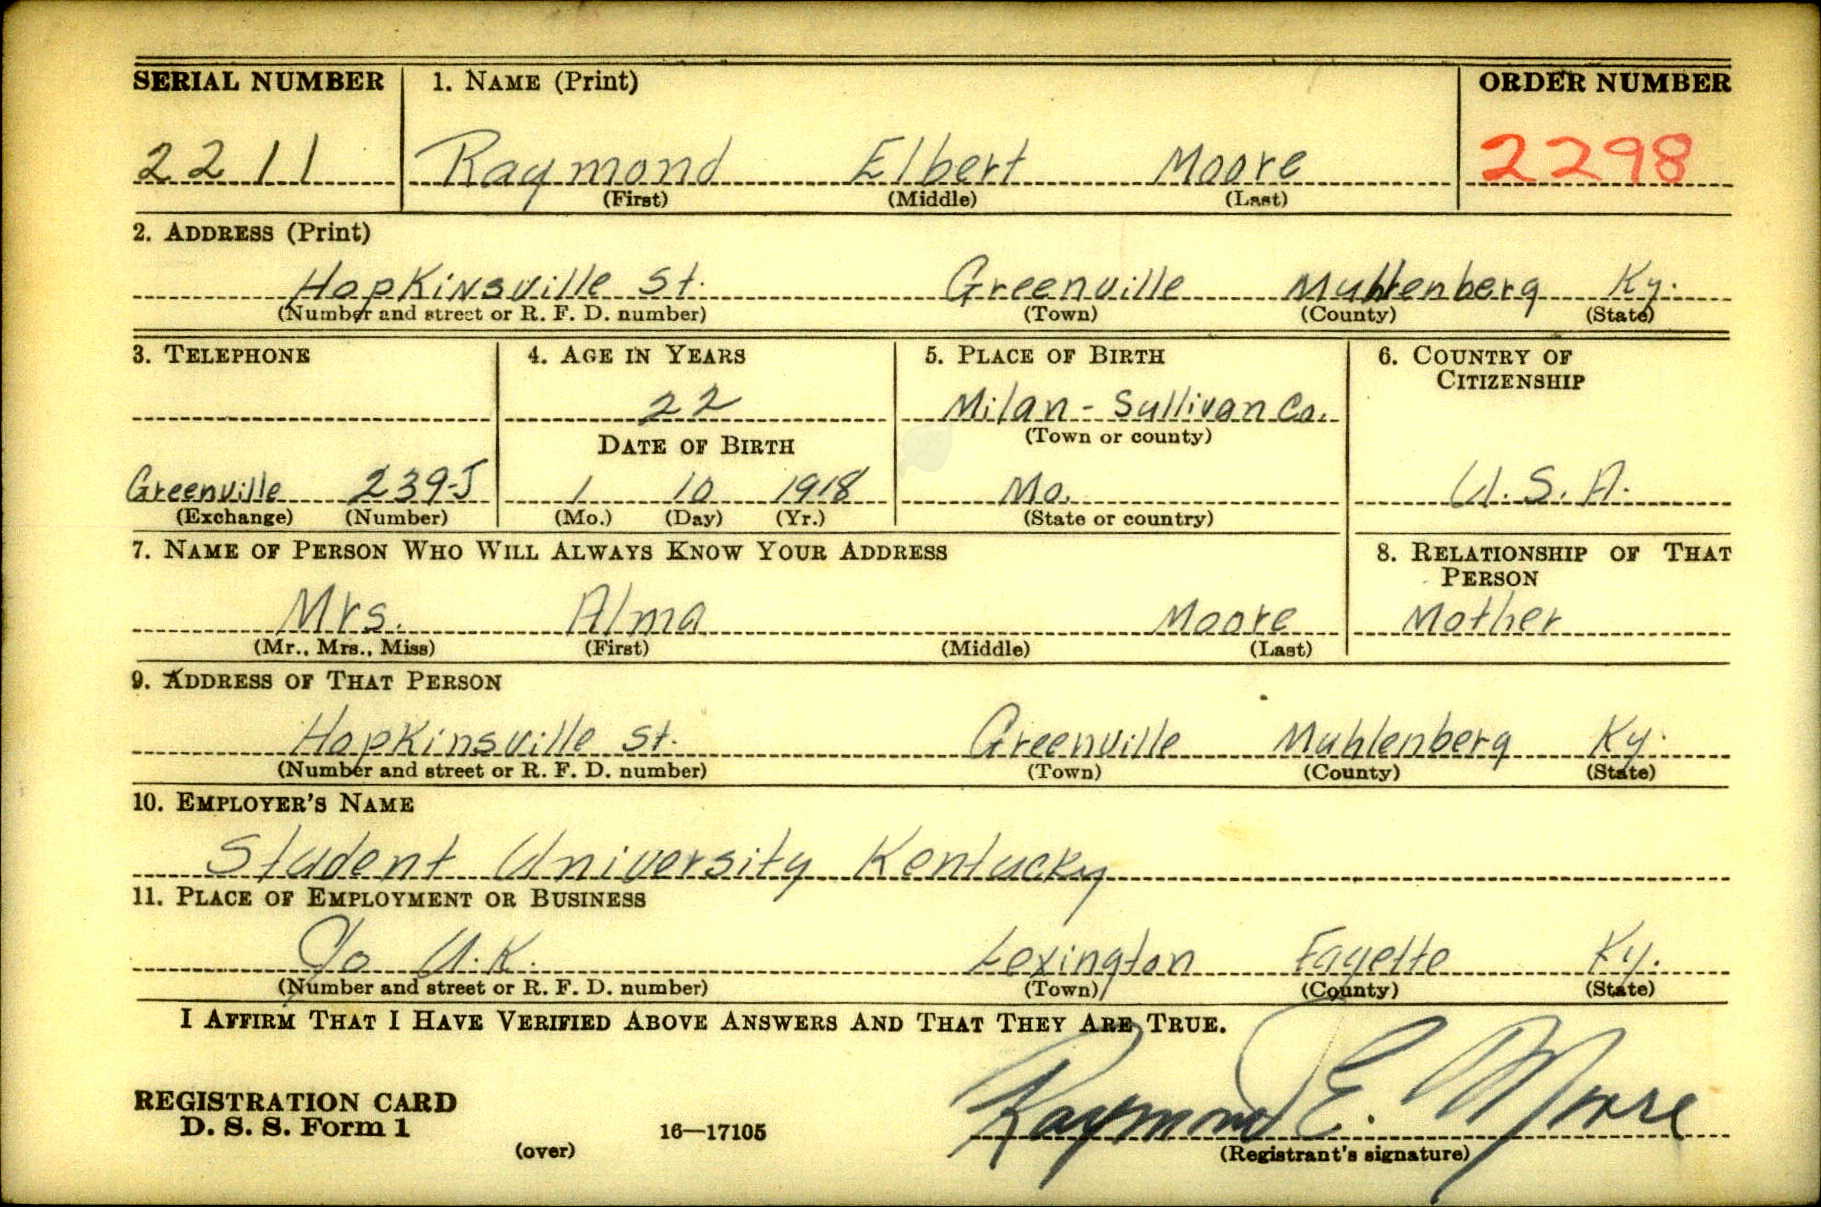 SERIAL NUMBER 1. NAME (Print) ORDER NUMBER
2211 Raymond Elbert Moore 2298
(First) (Middle) (Last)
2. ADDRESS (Print)
Hopkinsville St. Greenville Muhlenberg Ky.
(Number and street or R. F. D. number) (Town) (County) (State)
3. TELEPHONE 4. AGE IN YEARS 5. PLACE OF BIRTH 6. COUNTRY OF CITIZENSHIP
22 Milan - Sullivan Co.
DATE OF BIRTH (Town or county)
Greenville 239-J 1 10 1918 Mo. U.S.A.
(Exchange) (Number) (Mo.) (Day) (Yr.) (State or country)
7. NAME OF PERSON WHO WILL ALWAYS KNOW YOUR ADDRESS 8. RELATIONSHIP OF THAT PERSON
Mrs. Alma Moore Mother
(Mr., Mrs., Miss) (First) (Middle) (Last)
9. ADDRESS OF THAT PERSON
Hopkinsville St. Greenville Muhlenberg Ky.
(Number and street or R. F. D. number) (Town) (County) (State)
10. EMPLOYER'S NAME
Student University Kentucky
11. PLACE OF EMPLOYMENT OR BUSINESS
C/o U.K. Lexington Fayette Ky.
(Number and street or R. F. D. number) (Town) (County) (State)
I AFFIRM THAT I HAVE VERIFIED ABOVE ANSWERS AND THAT THEY ARE TRUE.
REGISTRATION CARD
D. S. S. Form 1 16—17105 Raymond E. Moore
(over) (Registrant's signature)